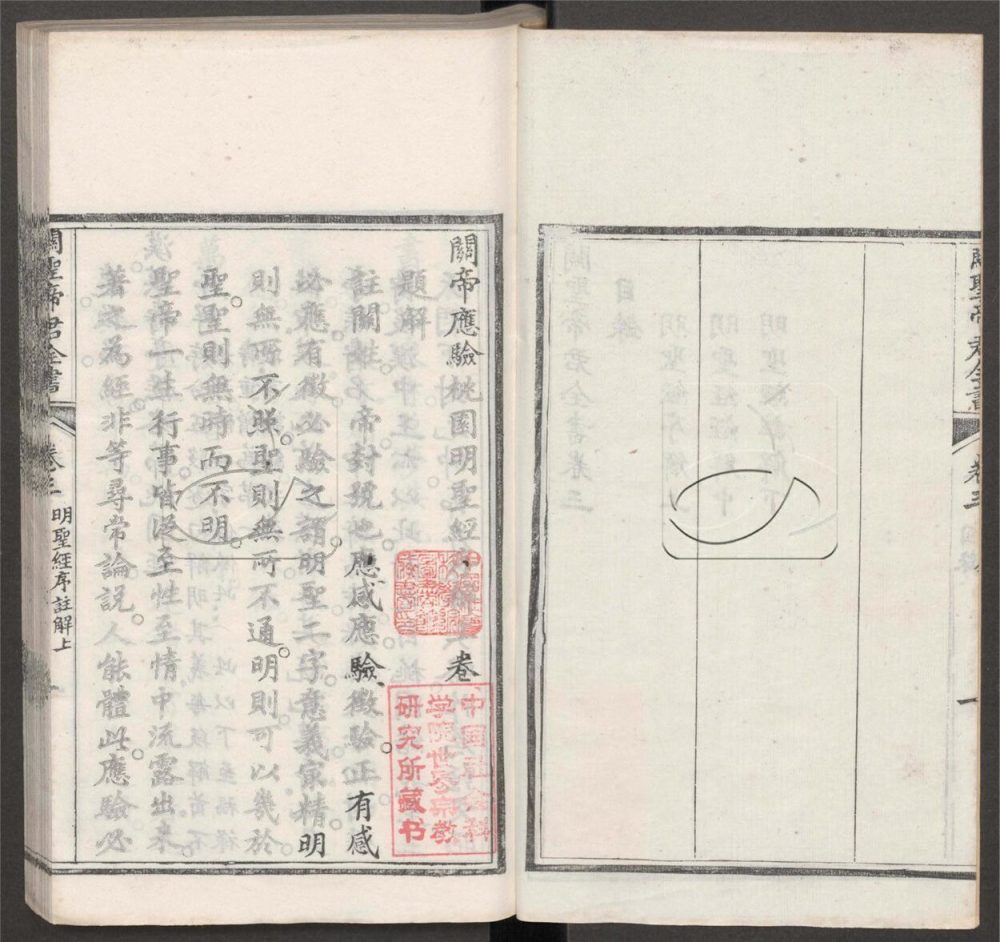 關聖帝君全書 卷三 一
關帝應驗桃園明聖經 卷
題解
註關姓。帝封號也。應感應。驗徵驗。正有感
必應。有徵必驗之謂。明聖二字。意義㝡精。明
則無所不照。聖則無所不通。明則可以幾於
聖。聖則無時而不明。
聖帝一生行事。皆從至性至情中流露出來。
著之為經。非等尋常論說。人能體此。應驗必
關聖帝君全書 卷三 明聖經序註解上 一
中国社会科
学院世界宗教
研究所藏书